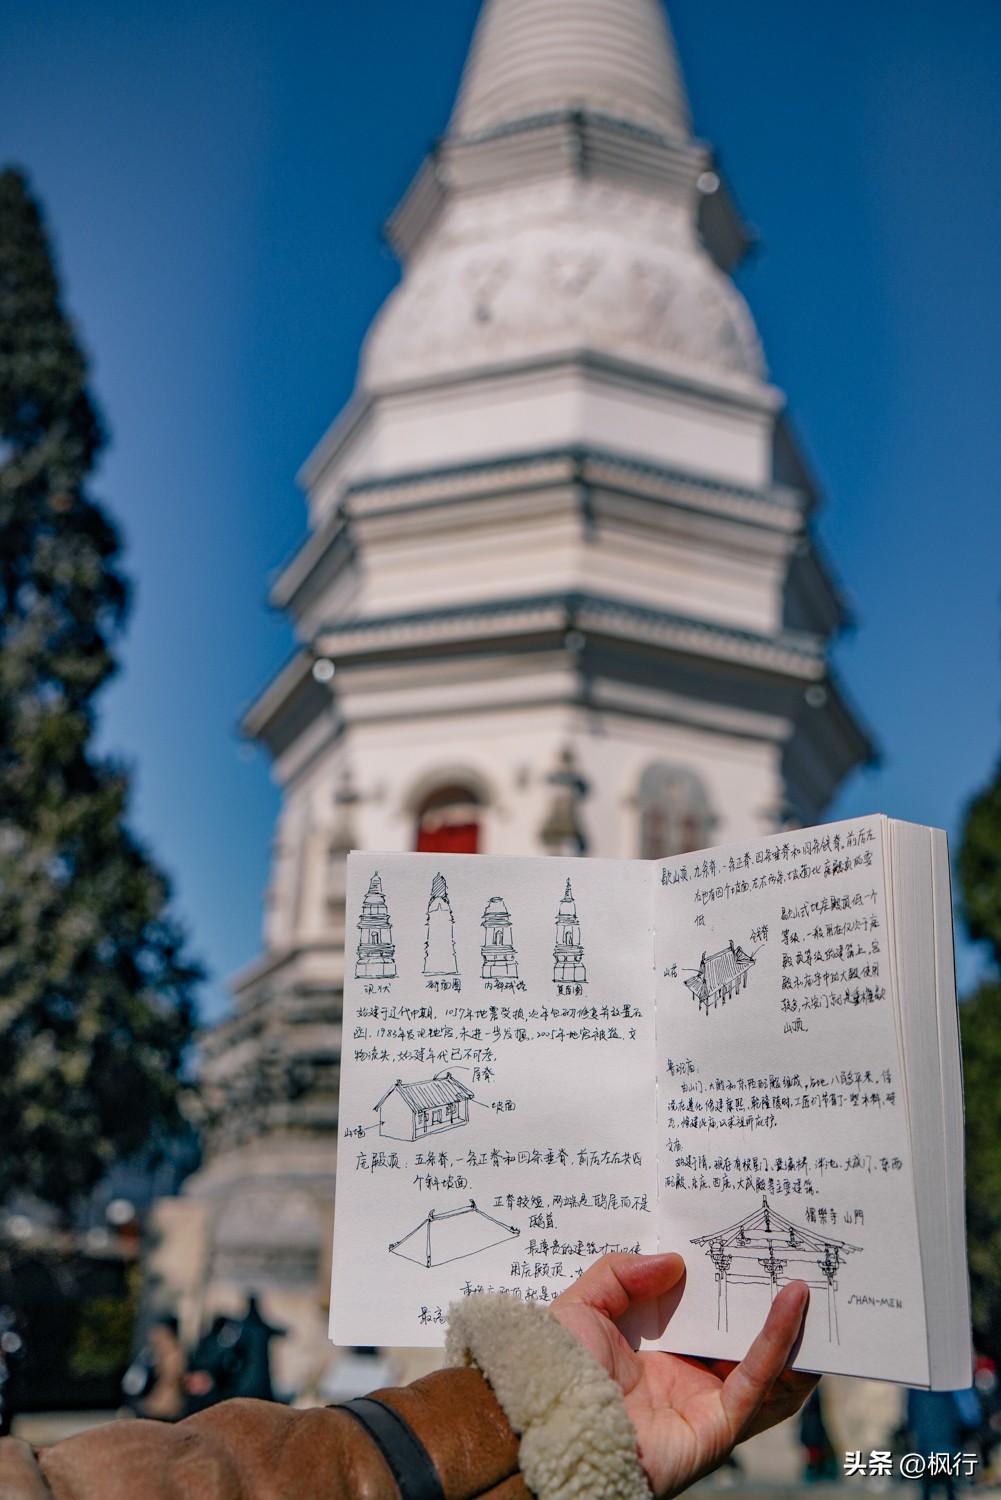 现状
剖面图
内部残塔
复原图
始建于辽代中期,1057年地震受损,
1983年发现地宫,未进一步发掘。2005年地宫被盗,文
物流失,始建年代已不可考。
屋脊
坡面
山墙
庑殿顶:五条脊,一条正脊和四条垂脊,前后左右共四
个斜坡面.
正脊较短,两端是鸱尾而不是
鸱首.
最尊贵的建筑才可以使
用庑殿顶.
最高
歇山顶,九条脊,一条正脊、四条垂脊和四条戗脊。前后左
右也有四个坡面,左右两条坡面比庑殿顶的要
低
戗脊
山花
歇山式比庑殿顶低一个
等级,一般用在仅次于庑
殿顶等级的建筑上,宫
殿和庙宇中的大殿使用
较多,天安门就是重檐歇
山顶。
鲁班庙:
由山门、大殿和东西配殿组成,占地八百多平米。传
说在遵化修建康熙、乾隆陵时,工匠们节省了一些木料,
修建此庙,以求祖师庇护。
文庙:
始建于隋。现存有棂星门、泮池、大成门、东西
配殿、大成殿等主要建筑。
獨樂寺 山門
SHAN-MEN
头条 @枫行